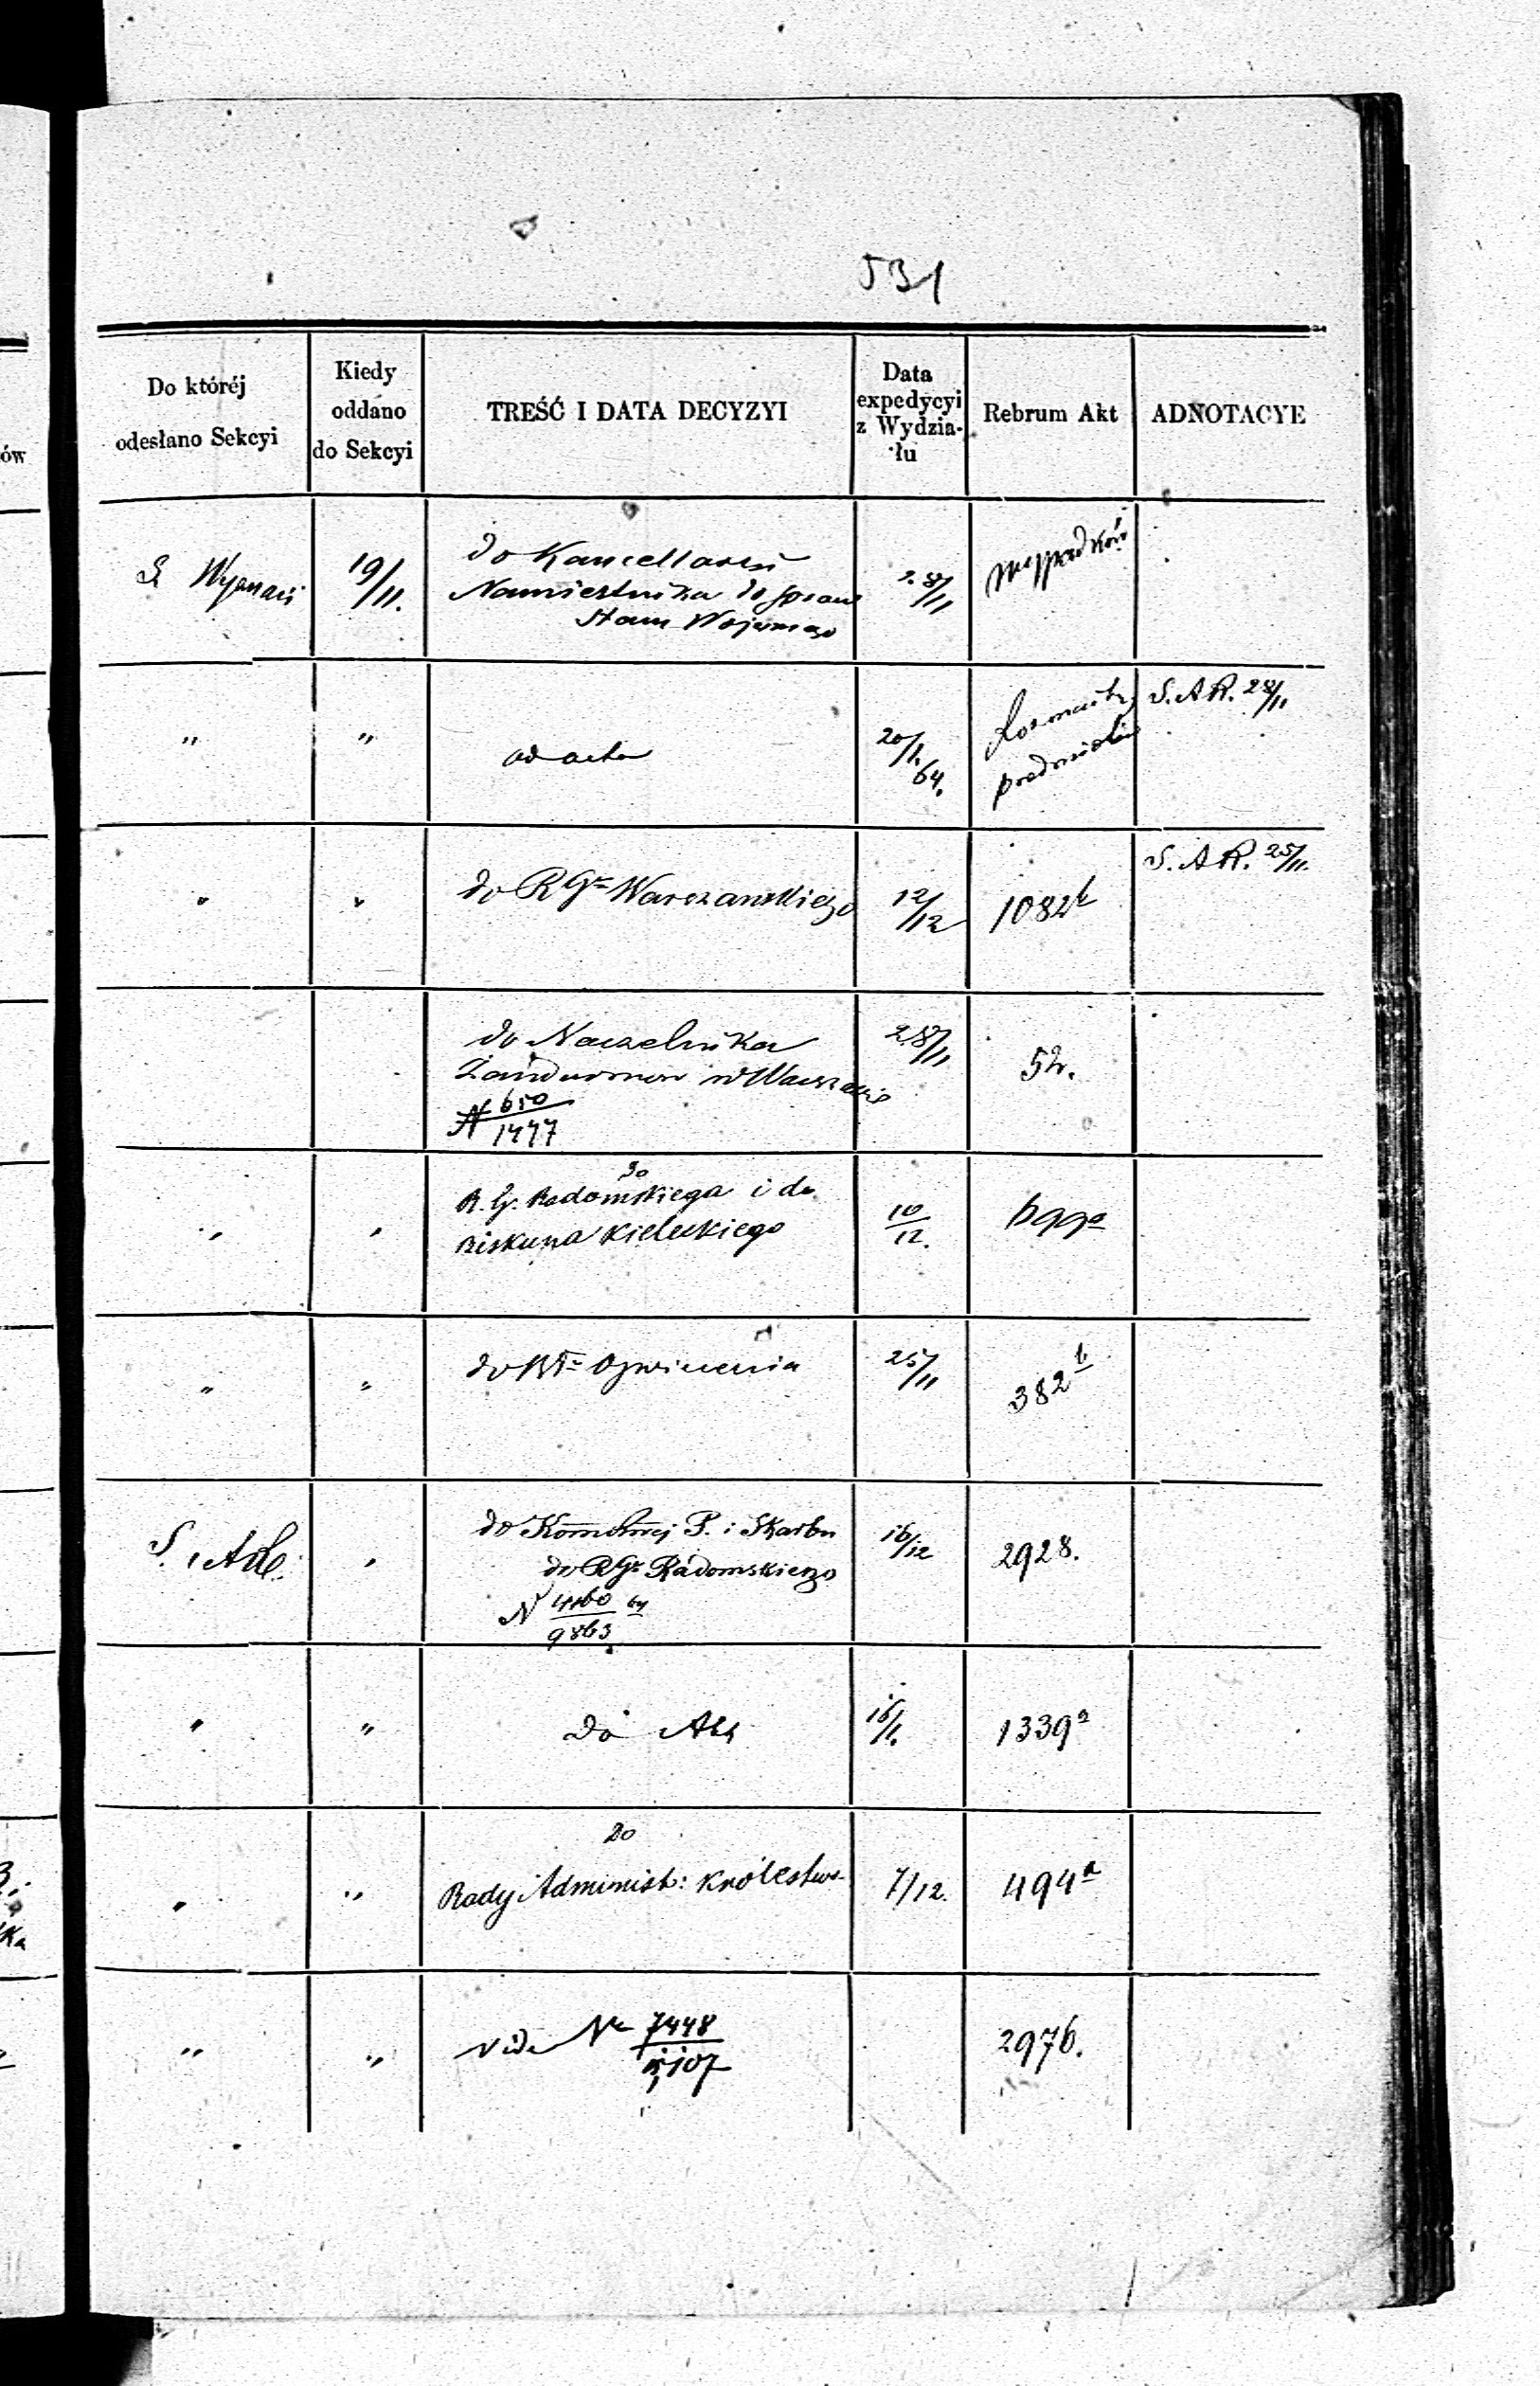 531
Do któréj odesłano Sekcyi
Kiedy oddano do Sekcyi
TREŚĆ I DATA DECYZYI
Data expedycyi z Wydzia-łu
Rebrum Akt
ADNOTACYE
S. Wyznań
19/11.
do Kancellaryi
Namiestnika do spraw
Stanu Wojennego
28/11
wypadków
"
"
ad acta
20/1. 64.
Rozmaitych
przedmiotów
S. A R. 28/11
"
"
do R Gu Warszawskiego
12/12
1082b
S. A R. 25/11.
do Naczelnika
Żandarmów w Warszawie
N 650/1477
28/11
52.
"
"
do
R. G. Radomskiego i do
Biskupa Kieleckiego
10/12.
699a
"
"
Oświecenia
25/11
382b
S. Adl.
"
P. i Skarbu
do R Gu Radomskiego
N 4160/9863 64
16/12
2928.
"
"
Do Akt
16/1.
1339a
"
"
Do
Rady Administ: Królestwa
7/12.
494a
"
"
Vide Nr 7448/
2976.
ów
ka